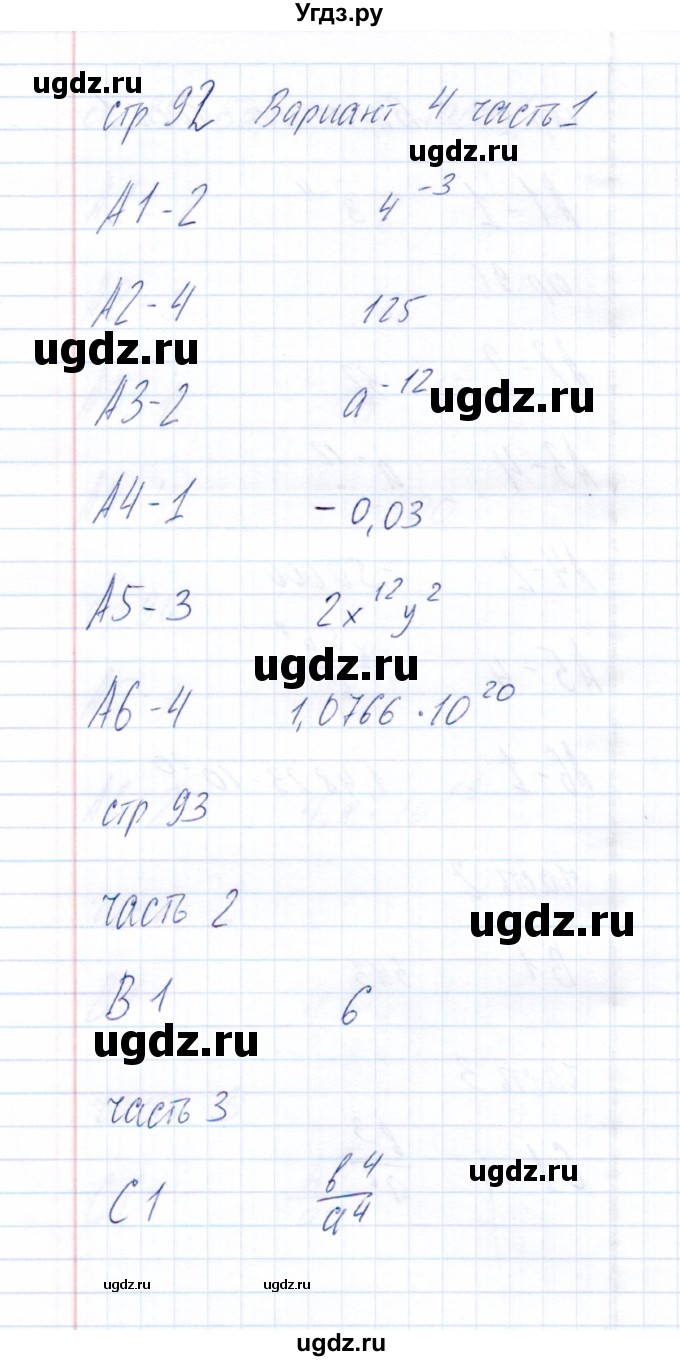 Угдз.ру
ugdz.ru
стр 92 Вариант 4 часть 1
ugdz.ru
А1-2 4⁻³
А2-4 125
ugdz.ru
А3-2 a⁻¹²
ugdz.ru
А4-1 -0,03
А5-3 2x¹²y²
ugdz.ru
А6-4 1,0766·10²⁰
стр 93
часть 2
ugdz.ru
В1 6
ugdz.ru
часть 3
ugdz.ru
С1 b⁴/a⁴
ugdz.ru ugdz.ru
ugdz.ru